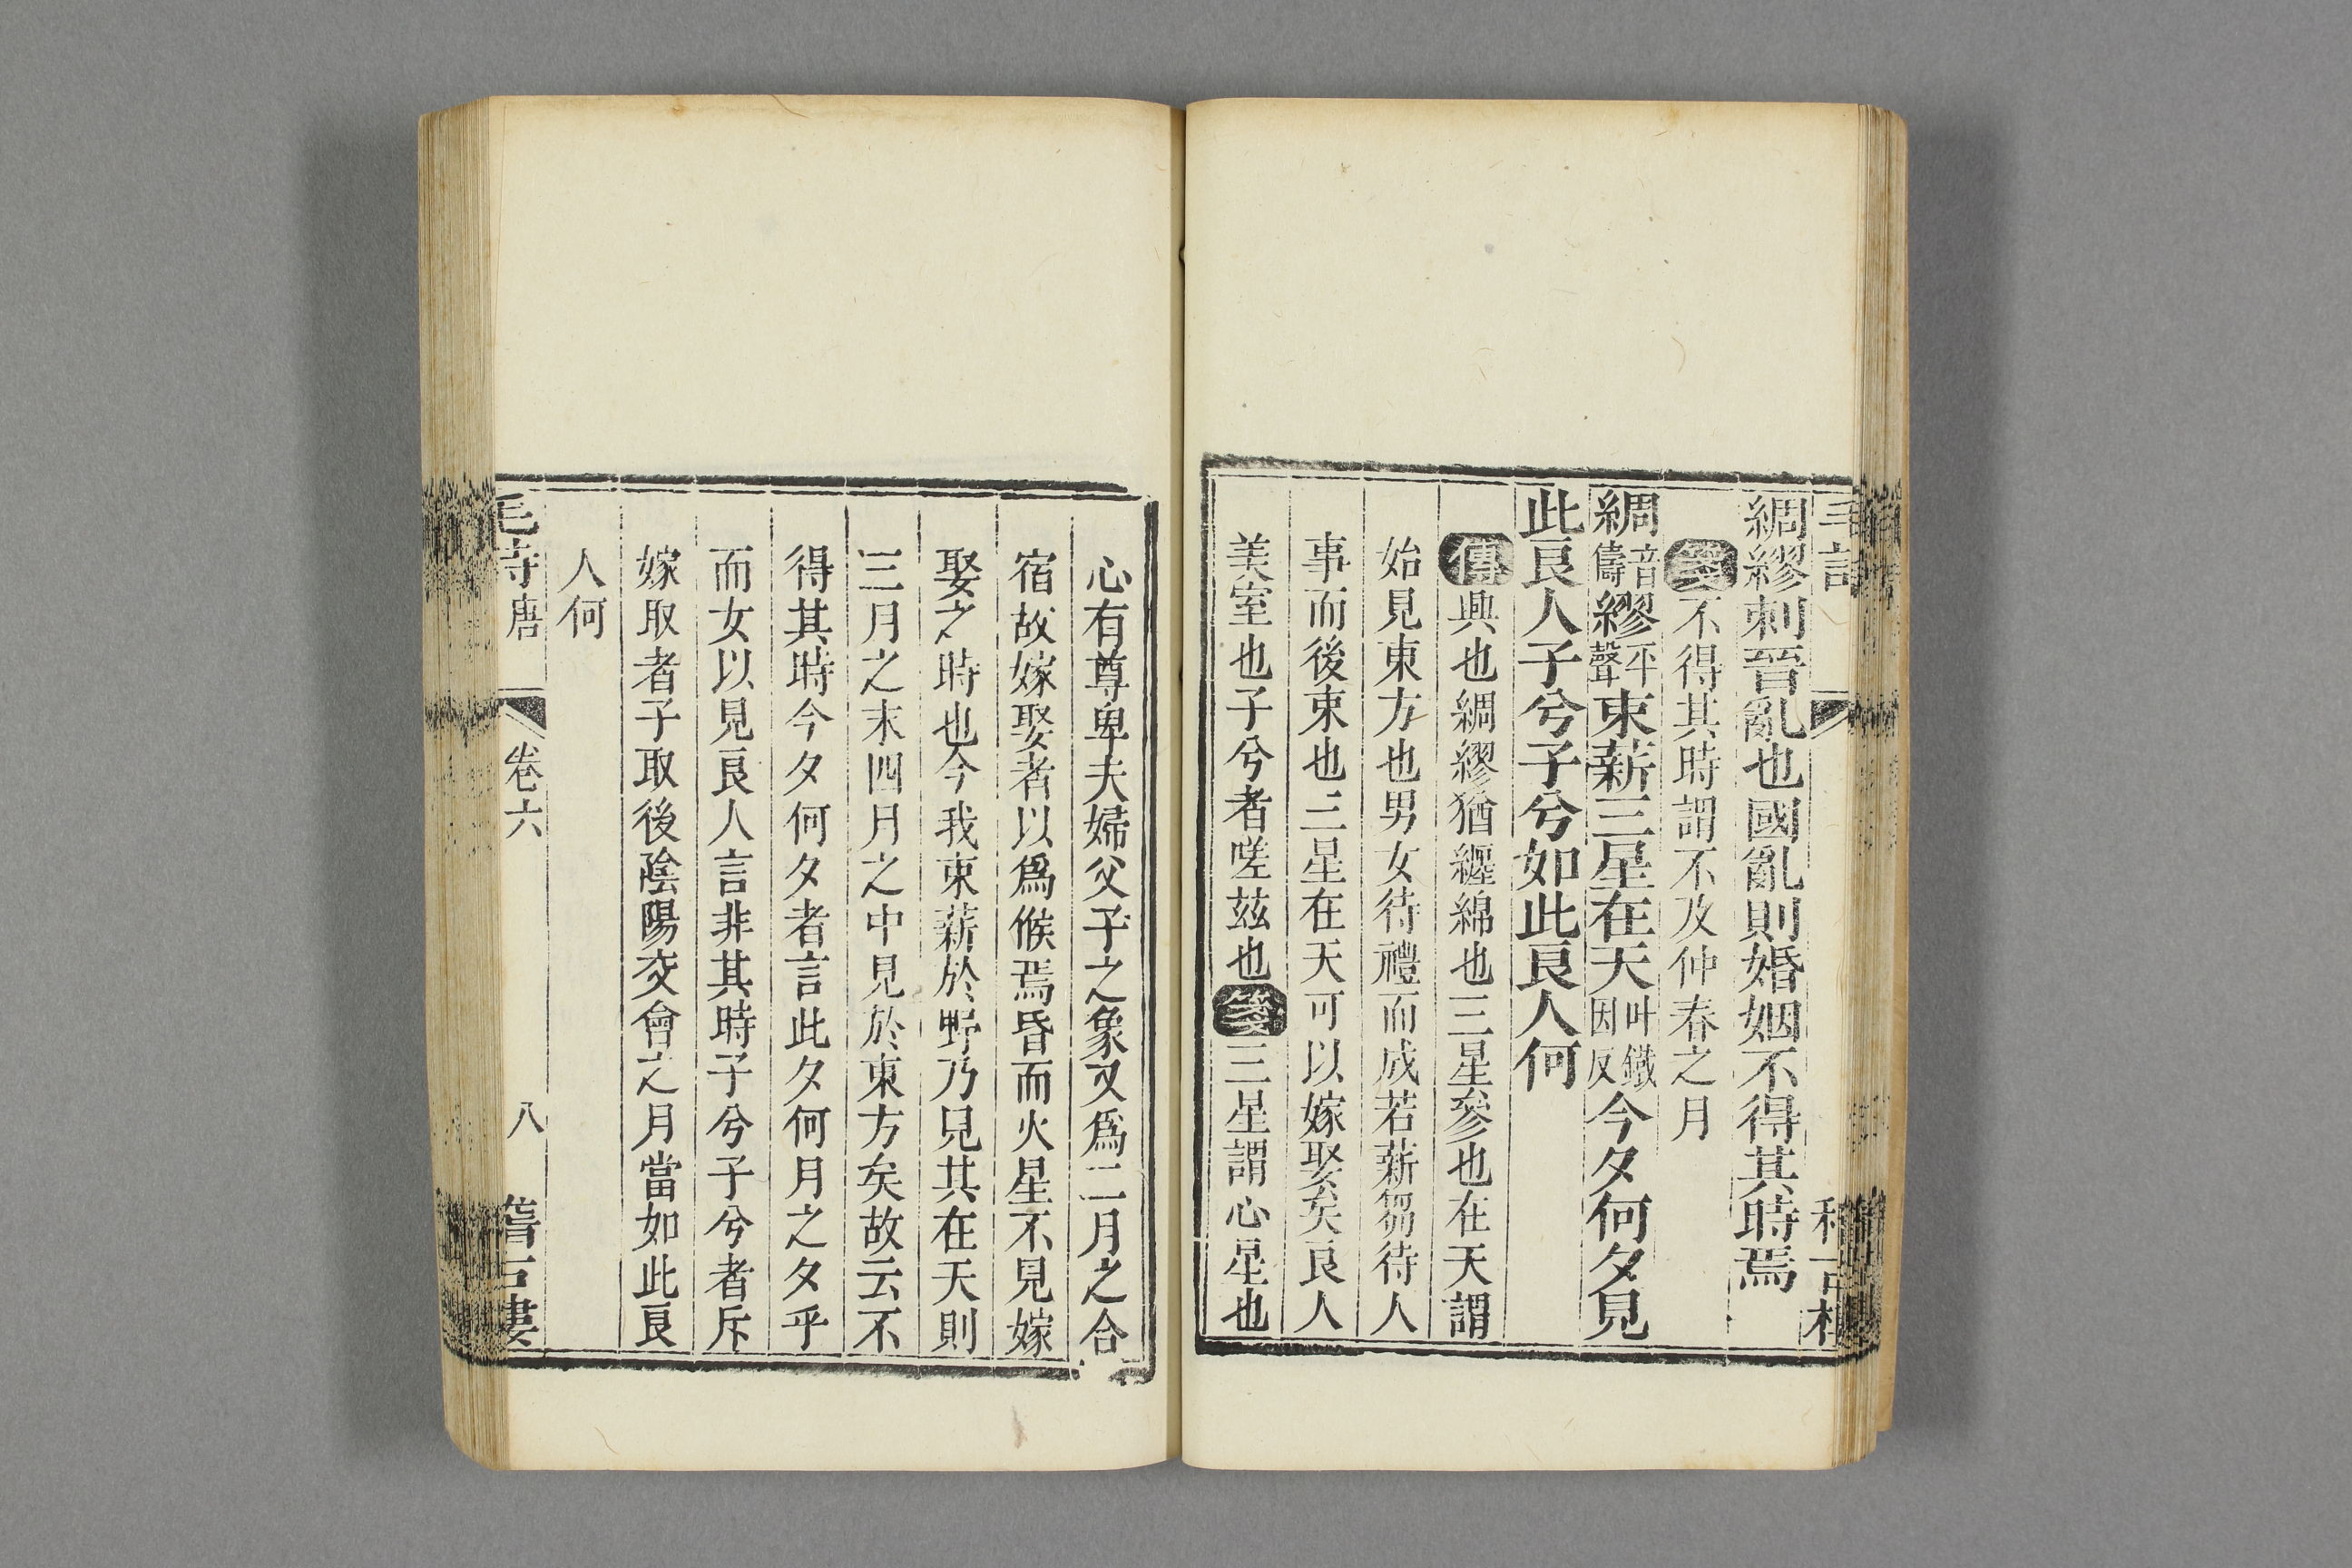 綢繆刺晉亂也國亂則婚姻不得其時焉
箋不得其時謂不及仲春之月
綢音儔繆平聲束薪三星在天叶鐵因反今夕何夕見
此良人子兮子兮如此良人何
傳興也綢繆猶纏綿也三星參也在天謂
始見東方也男女待禮而成若薪芻待人
事而後束也三星在天可以嫁娶矣良人
美室也子兮者嗟茲也箋三星謂心星也
心有尊卑夫婦父子之象又爲二月之合
宿故嫁娶者以爲候焉昏而火星不見嫁
娶之時也今我束薪於野乃見其在天則
三月之末四月之中見於東方矣故云不
得其時今夕何夕者言此夕何月之夕乎
而女以見良人言非其時子兮子兮者斥
嫁取者子取後陰陽交會之月當如此良
人何
毛詩唐 卷六 八